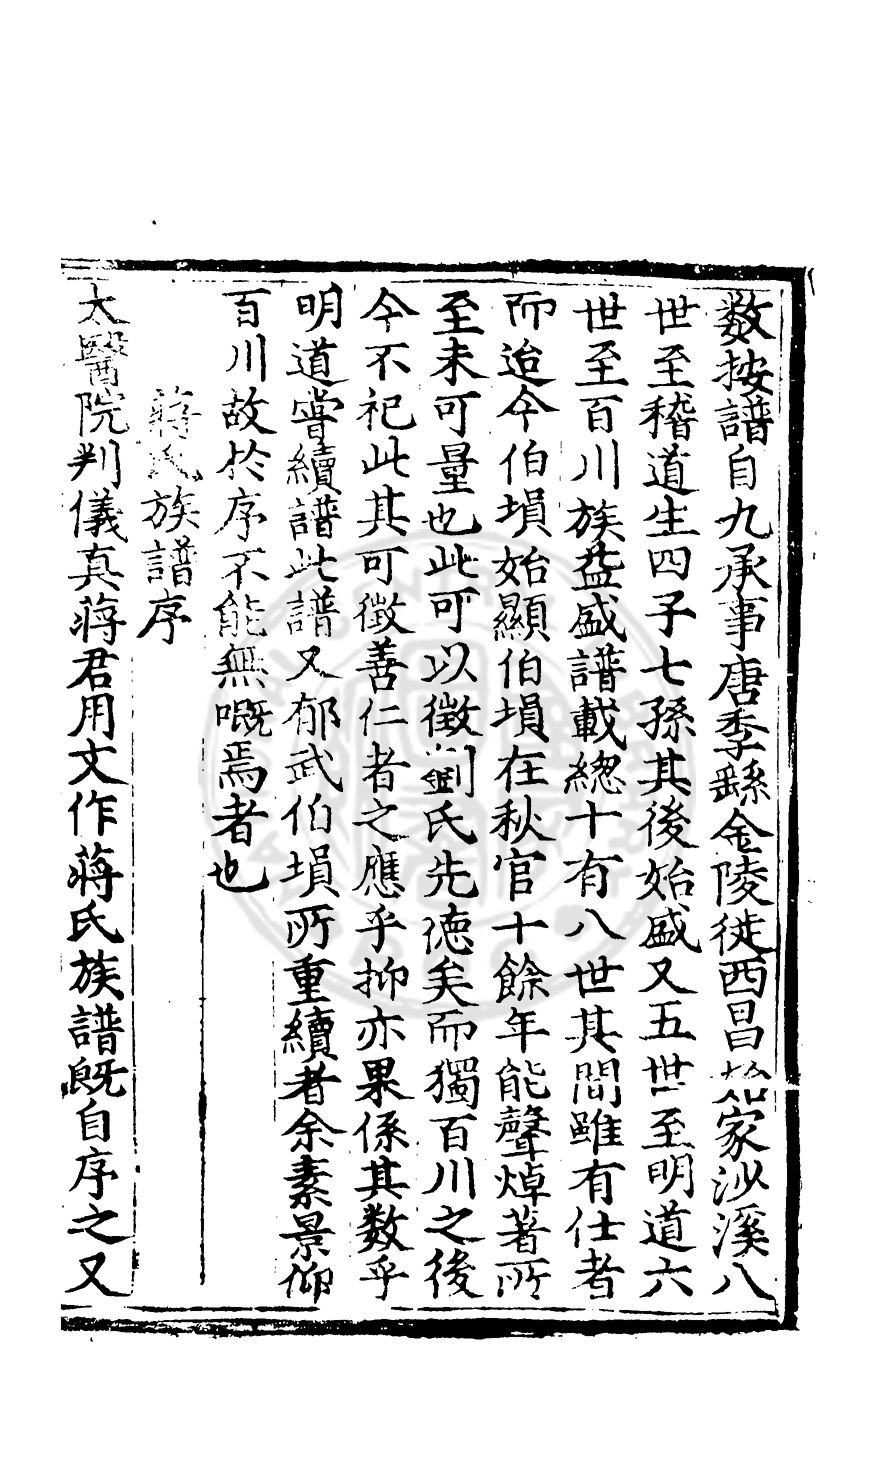 数按譜自九承事唐季繇金陵徙西昌始家沙溪八
世至稽道生四子七孫其後始盛又五世至明道六
世至百川族益盛譜載總十有八世其間雖有仕者
而迨今伯塤始顯伯塤在秋官十餘年能聲焯著所
至未可量也此可以徵劉氏先德矣而獨百川之後
今不祀此其可徵善仁者之應乎抑亦果係其数乎
明道甞續譜此譜又郁武伯塤所重續者余素景仰
百川故於序不能無嘅焉者也
蔣氏族譜序
太醫院判儀真蔣君用文作蔣氏族譜旣自序之又